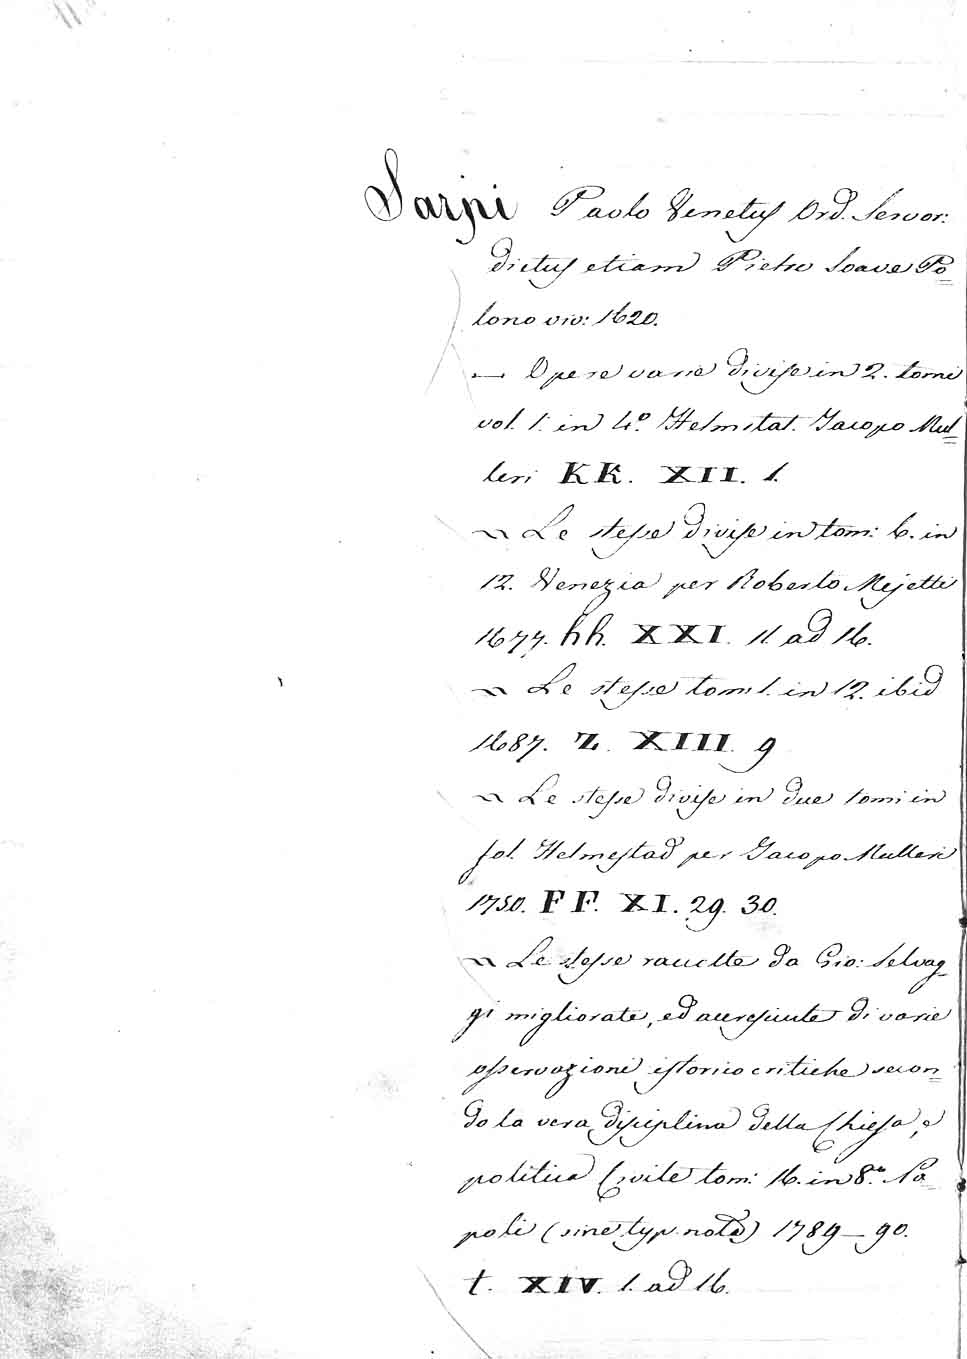 Sarpi Paolo Venetus Ord. Servor:
dictus etiam Pietro Soave Po=
lono viv: 1620.
— Opere varie divise in 2. tomi
vol. 1. in 4.o Helmstat. Jacopo Mul=
leri KK. XII. 1.
~ Le stesse divise in tom: 6. in
12. Venezia per Roberto Mejetti
1677. hh. XXI. 11. ad 16.
~ Le stesse tom: 1. in 12. ibid
1687. Z. XIII. 9
~ Le stesse divise in due tomi in
fol. Helmestad per Jacopo Mulleri
1750. FF. XI. 29. 30.
~ Le stesse raccolte da Gio: Selvag=
gi migliorate, ed accresciute di varie
osservazioni istorico critiche secon=
do la vera disciplina della Chiesa, e
politica Civile tom: 16. in 8.o Na=
poli (sine typ. nota) 1789—90.
t. XIV. 1. ad 16.